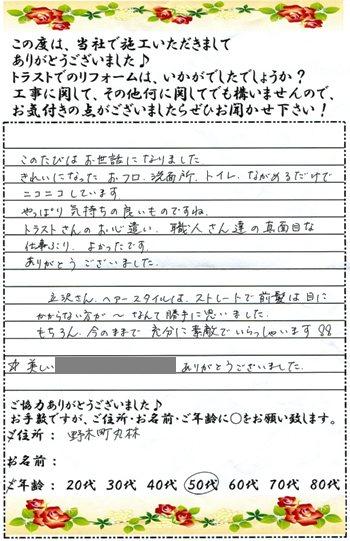 この度は、当社で施工いただきまして
ありがとうございました♪
トラストでのリフォームは、いかがでしたでしょうか？
工事に関して、その他何に関してでも構いませんので、
お気付きの点がございましたらぜひお聞かせ下さい！
このたびは お世話になりました
きれいになった おフロ、洗面所、トイレ、ながめるだけで
ニコニコしています。
やっぱり 気持ちの良いものですね。
トラストさんの お心遣い、職人さん達の真面目な
仕事ぶり、よかったです。
ありがとうございました。
立沢さん、ヘアースタイルは、ストレートで前髪は目に
かからない方が～なんて勝手に思いました。
もちろん、今のままで 充分に素敵でいらっしゃいます!!
美しい
ありがとうございました。
ご協力ありがとうございました♪
お手数ですが、ご住所・お名前・ご年齢に○をお願い致します。
ご住所： 野木町丸林
お名前：
ご年齢： 20代 30代 40代 50代 60代 70代 80代